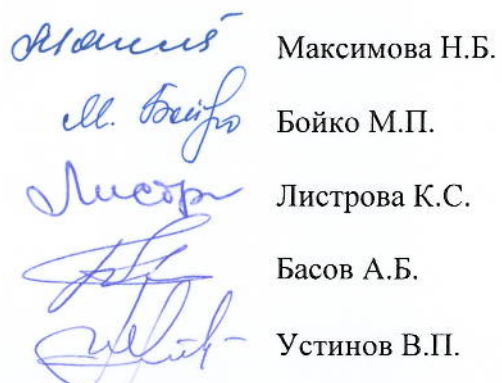 Максимова Н.Б.
М. Бойко Бойко М.П.
Листр Листрова К.С.
Басов А.Б.
Устинов В.П.